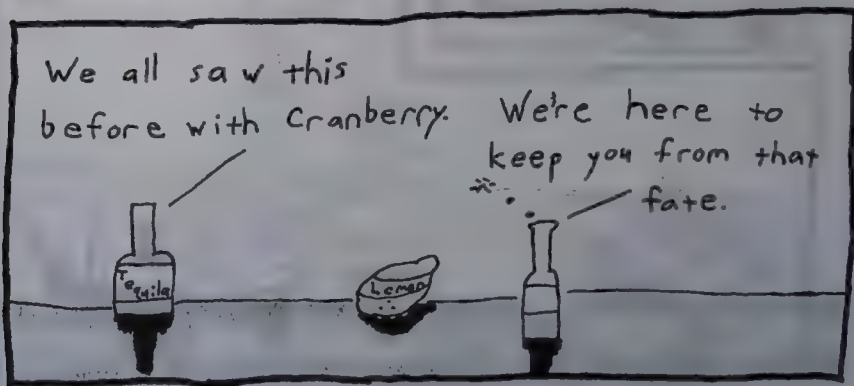 We all saw this
before with Cranberry.
We're here to
keep you from that
fate.
Tequila
Lemon